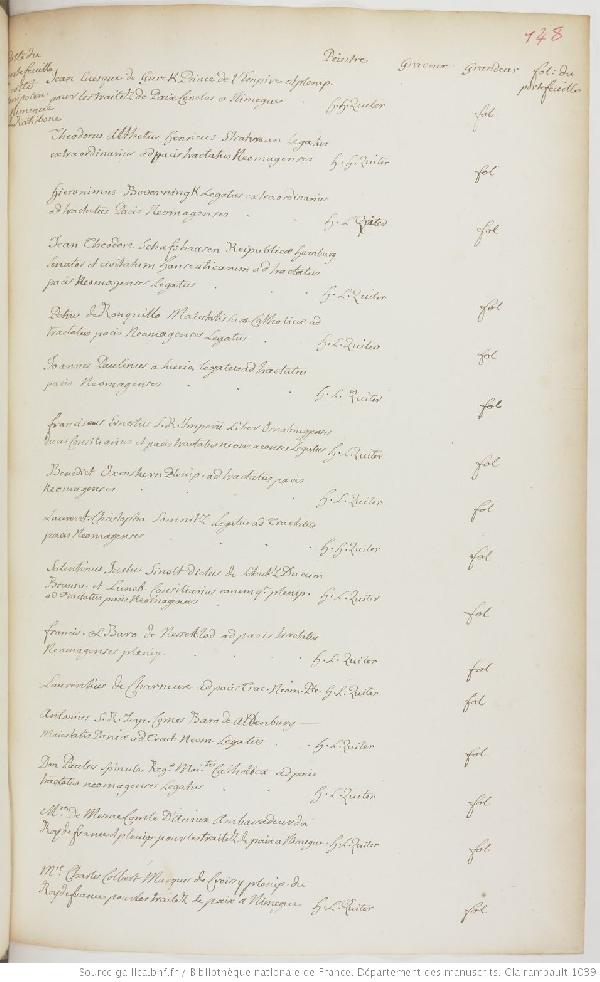 748
Peintre Graveur Grandeur fol: du portefeuille
Jean Evesque de Gurk Prince de l'Empire et plenip.
pour les traitéz de Paix Conclus a Nimegue H. H. Quiter fol
Theodorus Althetus Henricus Stratman Legatus
extraordinarius ad pacis tractatus Neomagenses H. H. Quiter fol
Hieronimus Beverningk Legatus extraordinarius
ad tractatus Pacis Neomagenses H. L. Quiter fol
Jean Theodore Schafshausen Reipublicæ Hamburg
Senator et civitatum Hanseaticarum ad tractatus
pacis Neomagenses Legatus H. L. Quiter fol
Petrus de Ronquillo Maiestatis suæ Catholicæ ad
tractatus pacis Neomagenses Legatus H. L. Quiter fol
Joannes Paulinus legatus ad tractatus
pacis Neomagenses H. L. Quiter fol
Franciscus Ernestus S. R. Imperii Liber
Consiliarius et pacis tractatus neomagenses Legatus H. L. Quiter fol
Benedict Oxenstiern Plenip. ad tractatus pacis
Neomagenses H. L. Quiter fol
Laurent Christophe Somnitz Legatus ad tractatus
pacis Neomagenses H. H. Quiter fol
Salentinus Justus Sinolt Dictus de Schutz Ducum
Brunsv. et Luneb. Consiliarius eorumq. plenip.
ad tractatus pacis Neomagenses H. L. Quiter fol
Francis. L. Baro de Nesselrod ad pacis tractatus
Neomagenses plenip. H. L. Quiter fol
Laurentius de Charneux ad pacis Trac. Neom. H. L. Quiter fol
Antonius S. R. Imp. Comes Baro de Aldenburg
Maiestatis Daniæ ad Tract. Neom. Legatus H. L. Quiter fol
Don Paulus Spinula Reg. Mai.tis Catholicæ ad pacis
tractatus neomagenses Legatus H. L. Quiter fol
M.re de Mesme Comte D'Avaux Ambassadeur du
Roy de france et plenip. pour les traitéz de paix a Nimegue H. L. Quiter fol
M.re Charles Colbert Marquis de Croissy plenip. du
Roy de france pour les traitéz de paix a Nimegue H. L. Quiter fol
Source gallica.bnf.fr / Bibliothèque nationale de France. Département des manuscrits. Clairambault 1039